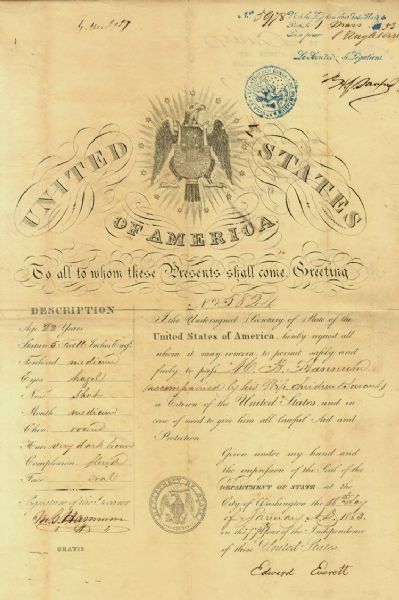 No. 5978
UNITED STATES
OF AMERICA
To all to whom these Presents shall come Greeting
DESCRIPTION
Age 22 Years
Stature 5 Feet Inches Eng.
Forehead medium
Eyes hazel
Nose
Mouth medium
Chin round
Hair very dark brown
Complexion florid
Face oval
Signature of the Bearer
GRATIS
I the Undersigned Secretary of State of the
United States of America, hereby request all
whom it may concern to permit safely and
freely to pass
accompanied by his Wife children & servants
a Citizen of the United States, and in
case of need to give him all lawful Aid and
Protection
Given under my hand and
the impression of the Seal of the
DEPARTMENT OF STATE at the
City of Washington the Day
of January A.D. 1853
in the Year of the Independence
of these United States.
Edward Everett